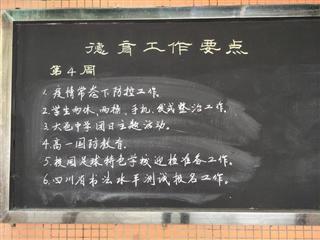 德育工作要点
第4周
1.疫情常态下防控工作。
2.学生两休、两操、手机、仪式整治工作。
3.大邑中学团日主题活动。
4.高一国防教育。
5.校园足球特色学校迎检准备工作。
6.四川省书法水平测试报名工作。